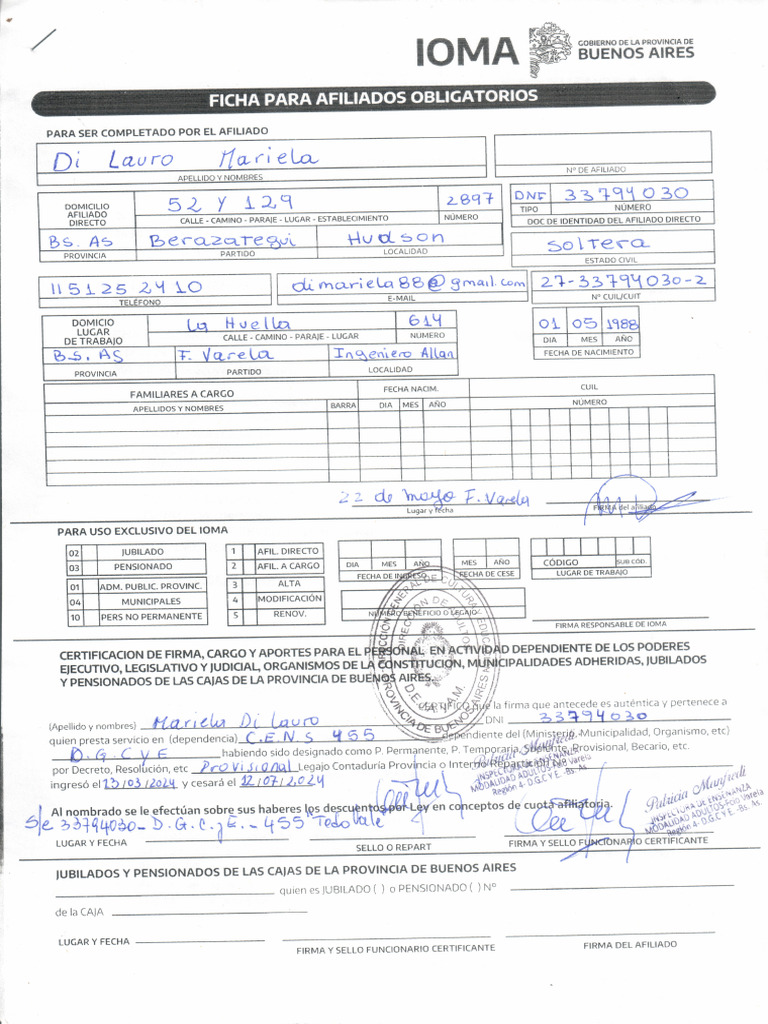 IOMA
GOBIERNO DE LA PROVINCIA DE
BUENOS AIRES
FICHA PARA AFILIADOS OBLIGATORIOS
PARA SER COMPLETADO POR EL AFILIADO
Di Lauro Mariela
APELLIDO Y NOMBRES
Nº DE AFILIADO
DOMICILIO AFILIADO DIRECTO
52 Y 129 2897
CALLE - CAMINO - PARAJE - LUGAR - ESTABLECIMIENTO NÚMERO
DNI 33794030
TIPO NÚMERO
DOC DE IDENTIDAD DEL AFILIADO DIRECTO
Bs. As Berazategui Hudson
PROVINCIA PARTIDO LOCALIDAD
Soltera
ESTADO CIVIL
1151252410
TELÉFONO
dimariela88@gmail.com
E-MAIL
27-33794030-2
Nº CUIL/CUIT
DOMICIO LUGAR DE TRABAJO
La Huella 614
CALLE - CAMINO - PARAJE - LUGAR NUMERO
01 05 1988
DIA MES AÑO
FECHA DE NACIMIENTO
B.S. AS F. Varela Ingeniero Allan
PROVINCIA PARTIDO LOCALIDAD
FAMILIARES A CARGO FECHA NACIM. CUIL
APELLIDOS Y NOMBRES BARRA DIA MES AÑO NÚMERO
22 de mayo F. Varela
Lugar y fecha FIRMA del afiliado
PARA USO EXCLUSIVO DEL IOMA
02 JUBILADO
03 PENSIONADO
01 ADM. PUBLIC. PROVINC.
04 MUNICIPALES
10 PERS NO PERMANENTE
1 AFIL. DIRECTO
2 AFIL. A CARGO
3 ALTA
4 MODIFICACIÓN
5 RENOV.
DIA MES AÑO
FECHA DE INGRESO
MES AÑO
FECHA DE CESE
CÓDIGO SUB COD.
LUGAR DE TRABAJO
NUMERO BENEFICIO O LEGAJO
FIRMA RESPONSABLE DE IOMA
CERTIFICACION DE FIRMA, CARGO Y APORTES PARA EL PERSONAL EN ACTIVIDAD DEPENDIENTE DE LOS PODERES
EJECUTIVO, LEGISLATIVO Y JUDICIAL, ORGANISMOS DE LA CONSTITUCION, MUNICIPALIDADES ADHERIDAS, JUBILADOS
Y PENSIONADOS DE LAS CAJAS DE LA PROVINCIA DE BUENOS AIRES.
CERTIFICO que la firma que antecede es auténtica y pertenece a
(Apellido y nombres) Mariela Di Lauro DNI 33794030
quien presta servicio en (dependencia) C.E.N.S 455 dependiente del (Ministerio, Municipalidad, Organismo, etc)
D.G.C y E habiendo sido designado como P. Permanente, P. Temporaria, Suplente, Provisional, Becario, etc.
por Decreto, Resolución, etc Provisional Legajo Contaduría Provincia o Interno Repartición Nº
ingresó el 13/03/2024 y cesará el 12/07/2024
Al nombrado se le efectúan sobre sus haberes los descuentos por Ley en conceptos de cuota afiliatoria.
S/e 33794030- D.G.C.yE.- 455 Todo Vale
LUGAR Y FECHA SELLO O REPART FIRMA Y SELLO FUNCIONARIO CERTIFICANTE
Patricia Manfredi
INSPECTORA DE ENSEÑANZA
MODALIDAD ADULTOS-Fcio Varela
Región 4- D.G.C Y E -Bs. As.
Patricia Manfredi
INSPECTORA DE ENSEÑANZA
MODALIDAD ADULTOS-Fcio Varela
Región 4- D.G.C Y E -Bs. As.
JUBILADOS Y PENSIONADOS DE LAS CAJAS DE LA PROVINCIA DE BUENOS AIRES
quien es JUBILADO ( ) o PENSIONADO ( ) Nº
de la CAJA
LUGAR Y FECHA FIRMA Y SELLO FUNCIONARIO CERTIFICANTE FIRMA DEL AFILIADO